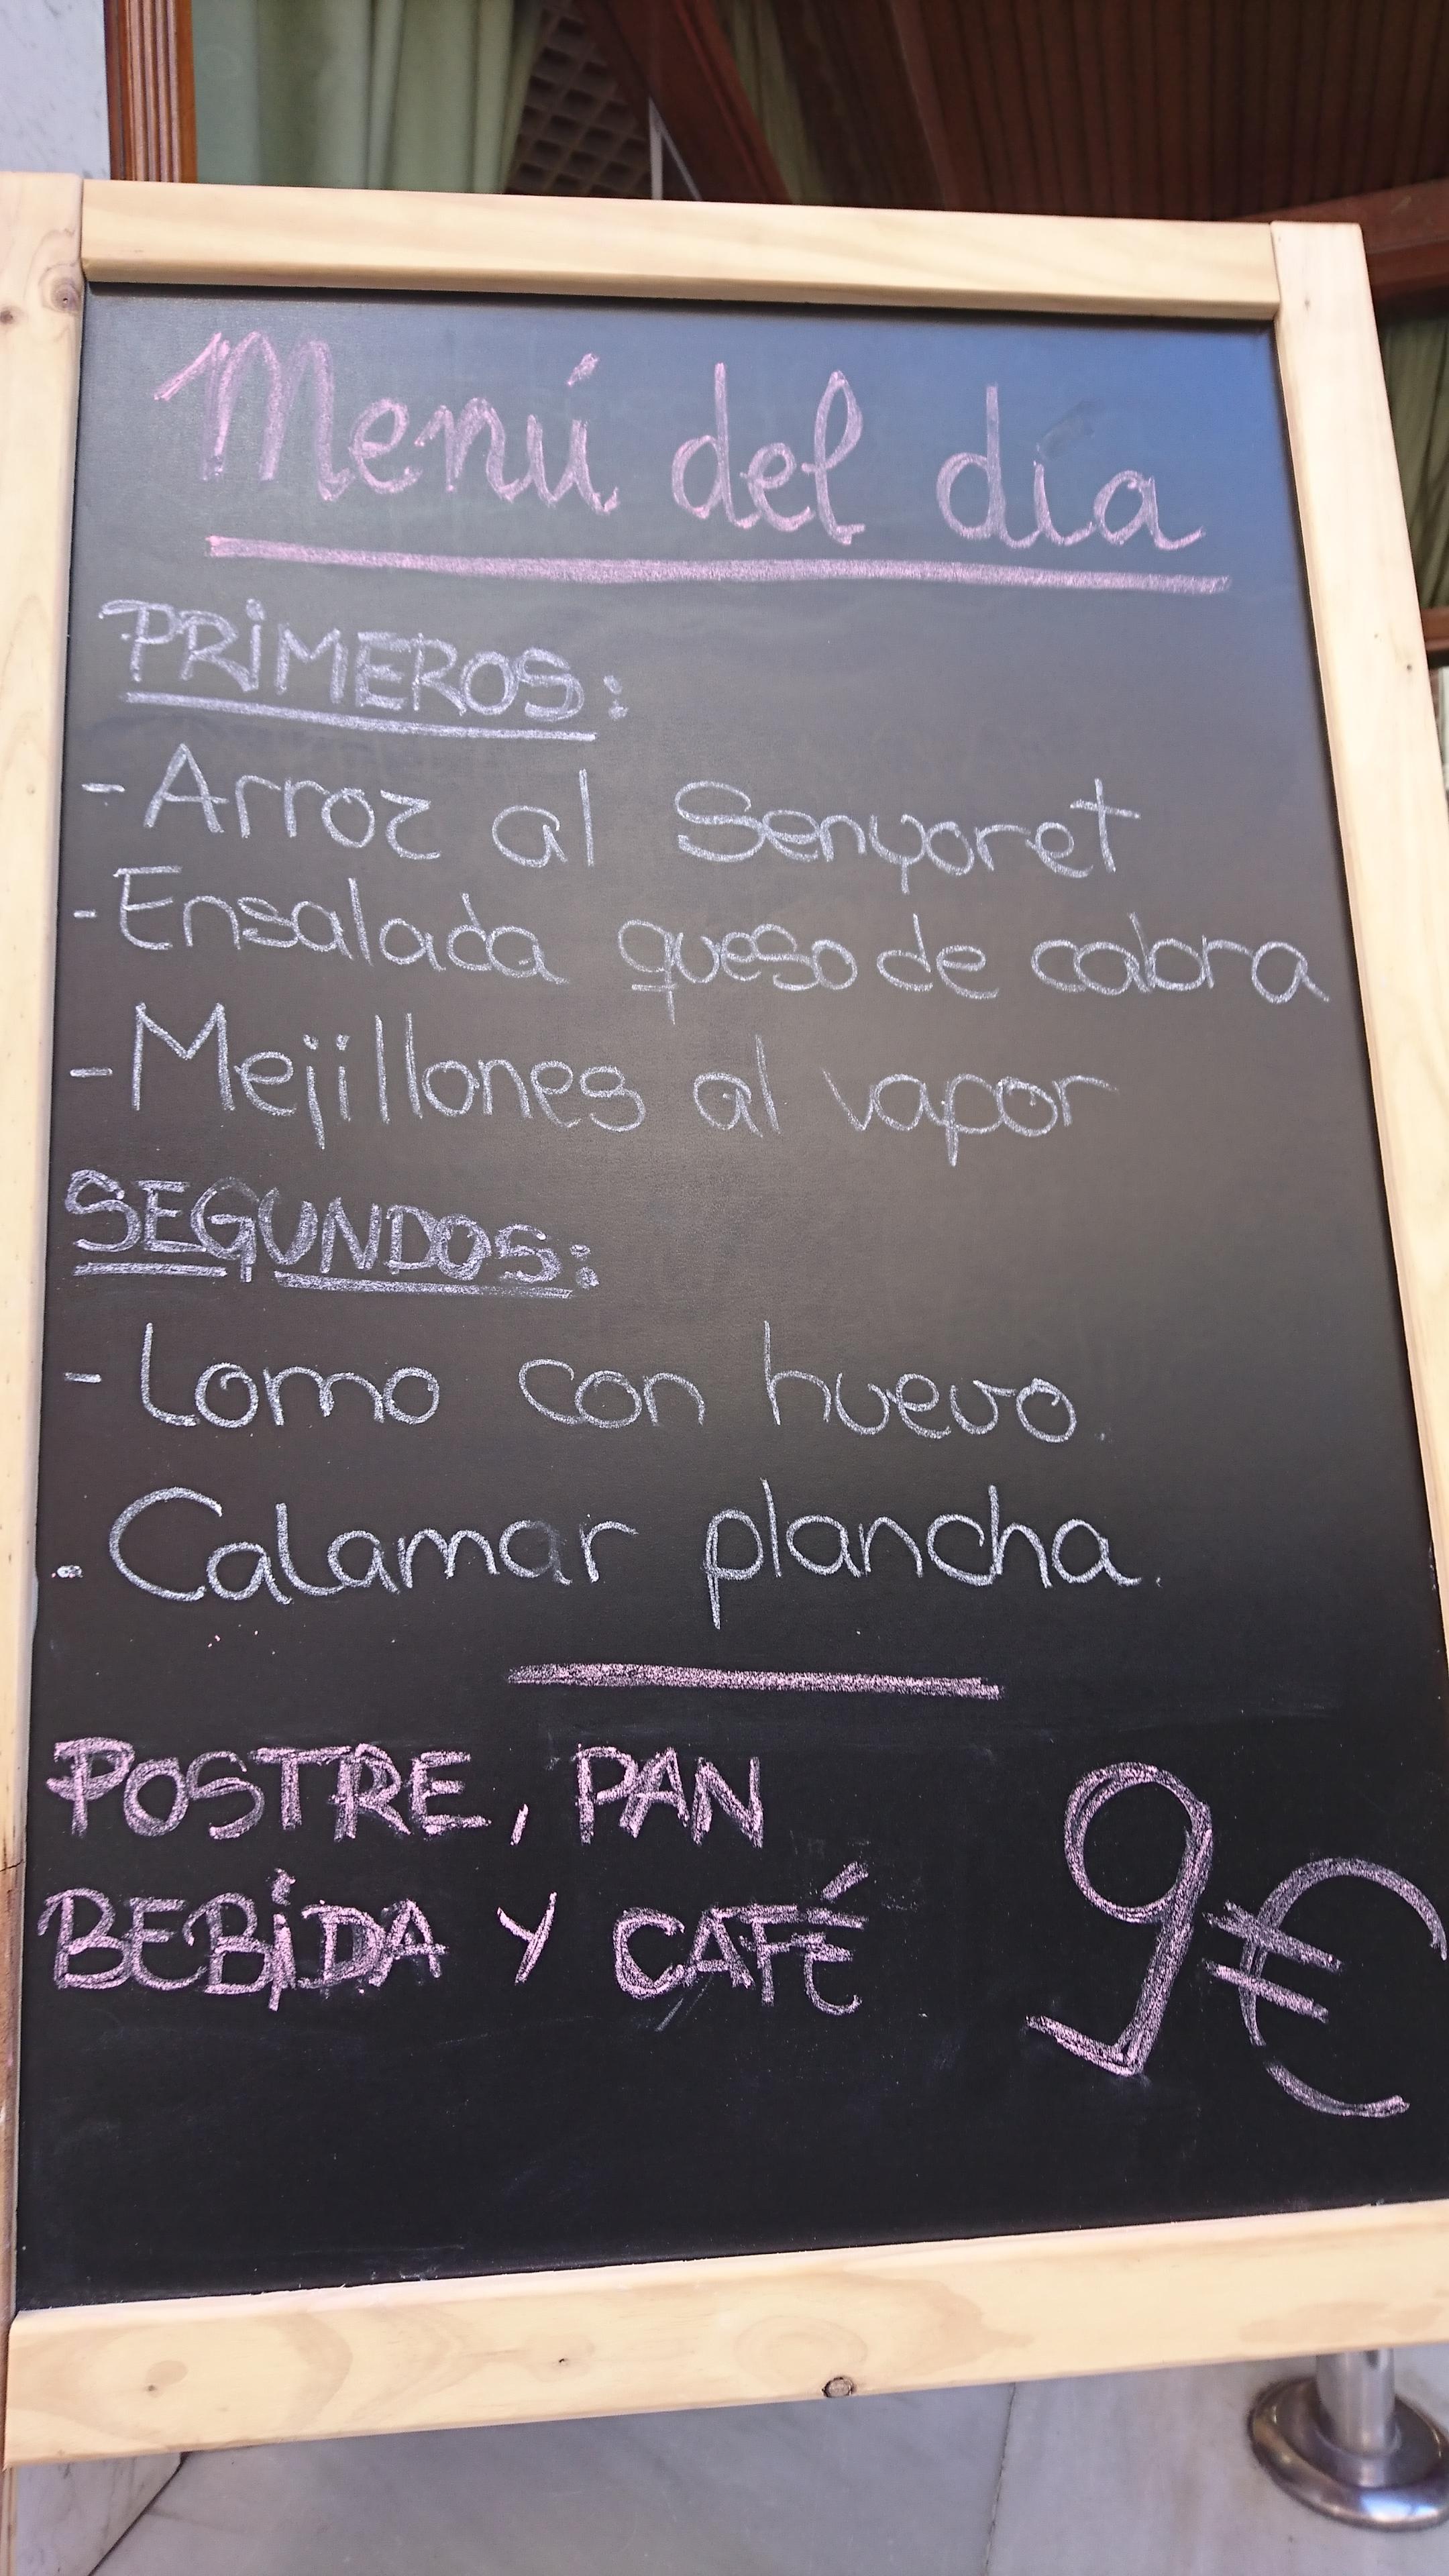 Menú del día
PRiMEROS:
- Arroz al Senyoret
- Ensalada queso de cabra
- Mejillones al vapor
SEGUNDOS:
- Lomo con huevo.
- Calamar plancha.
POSTRE, PAN
BEBiDA Y CAFÉ
9€